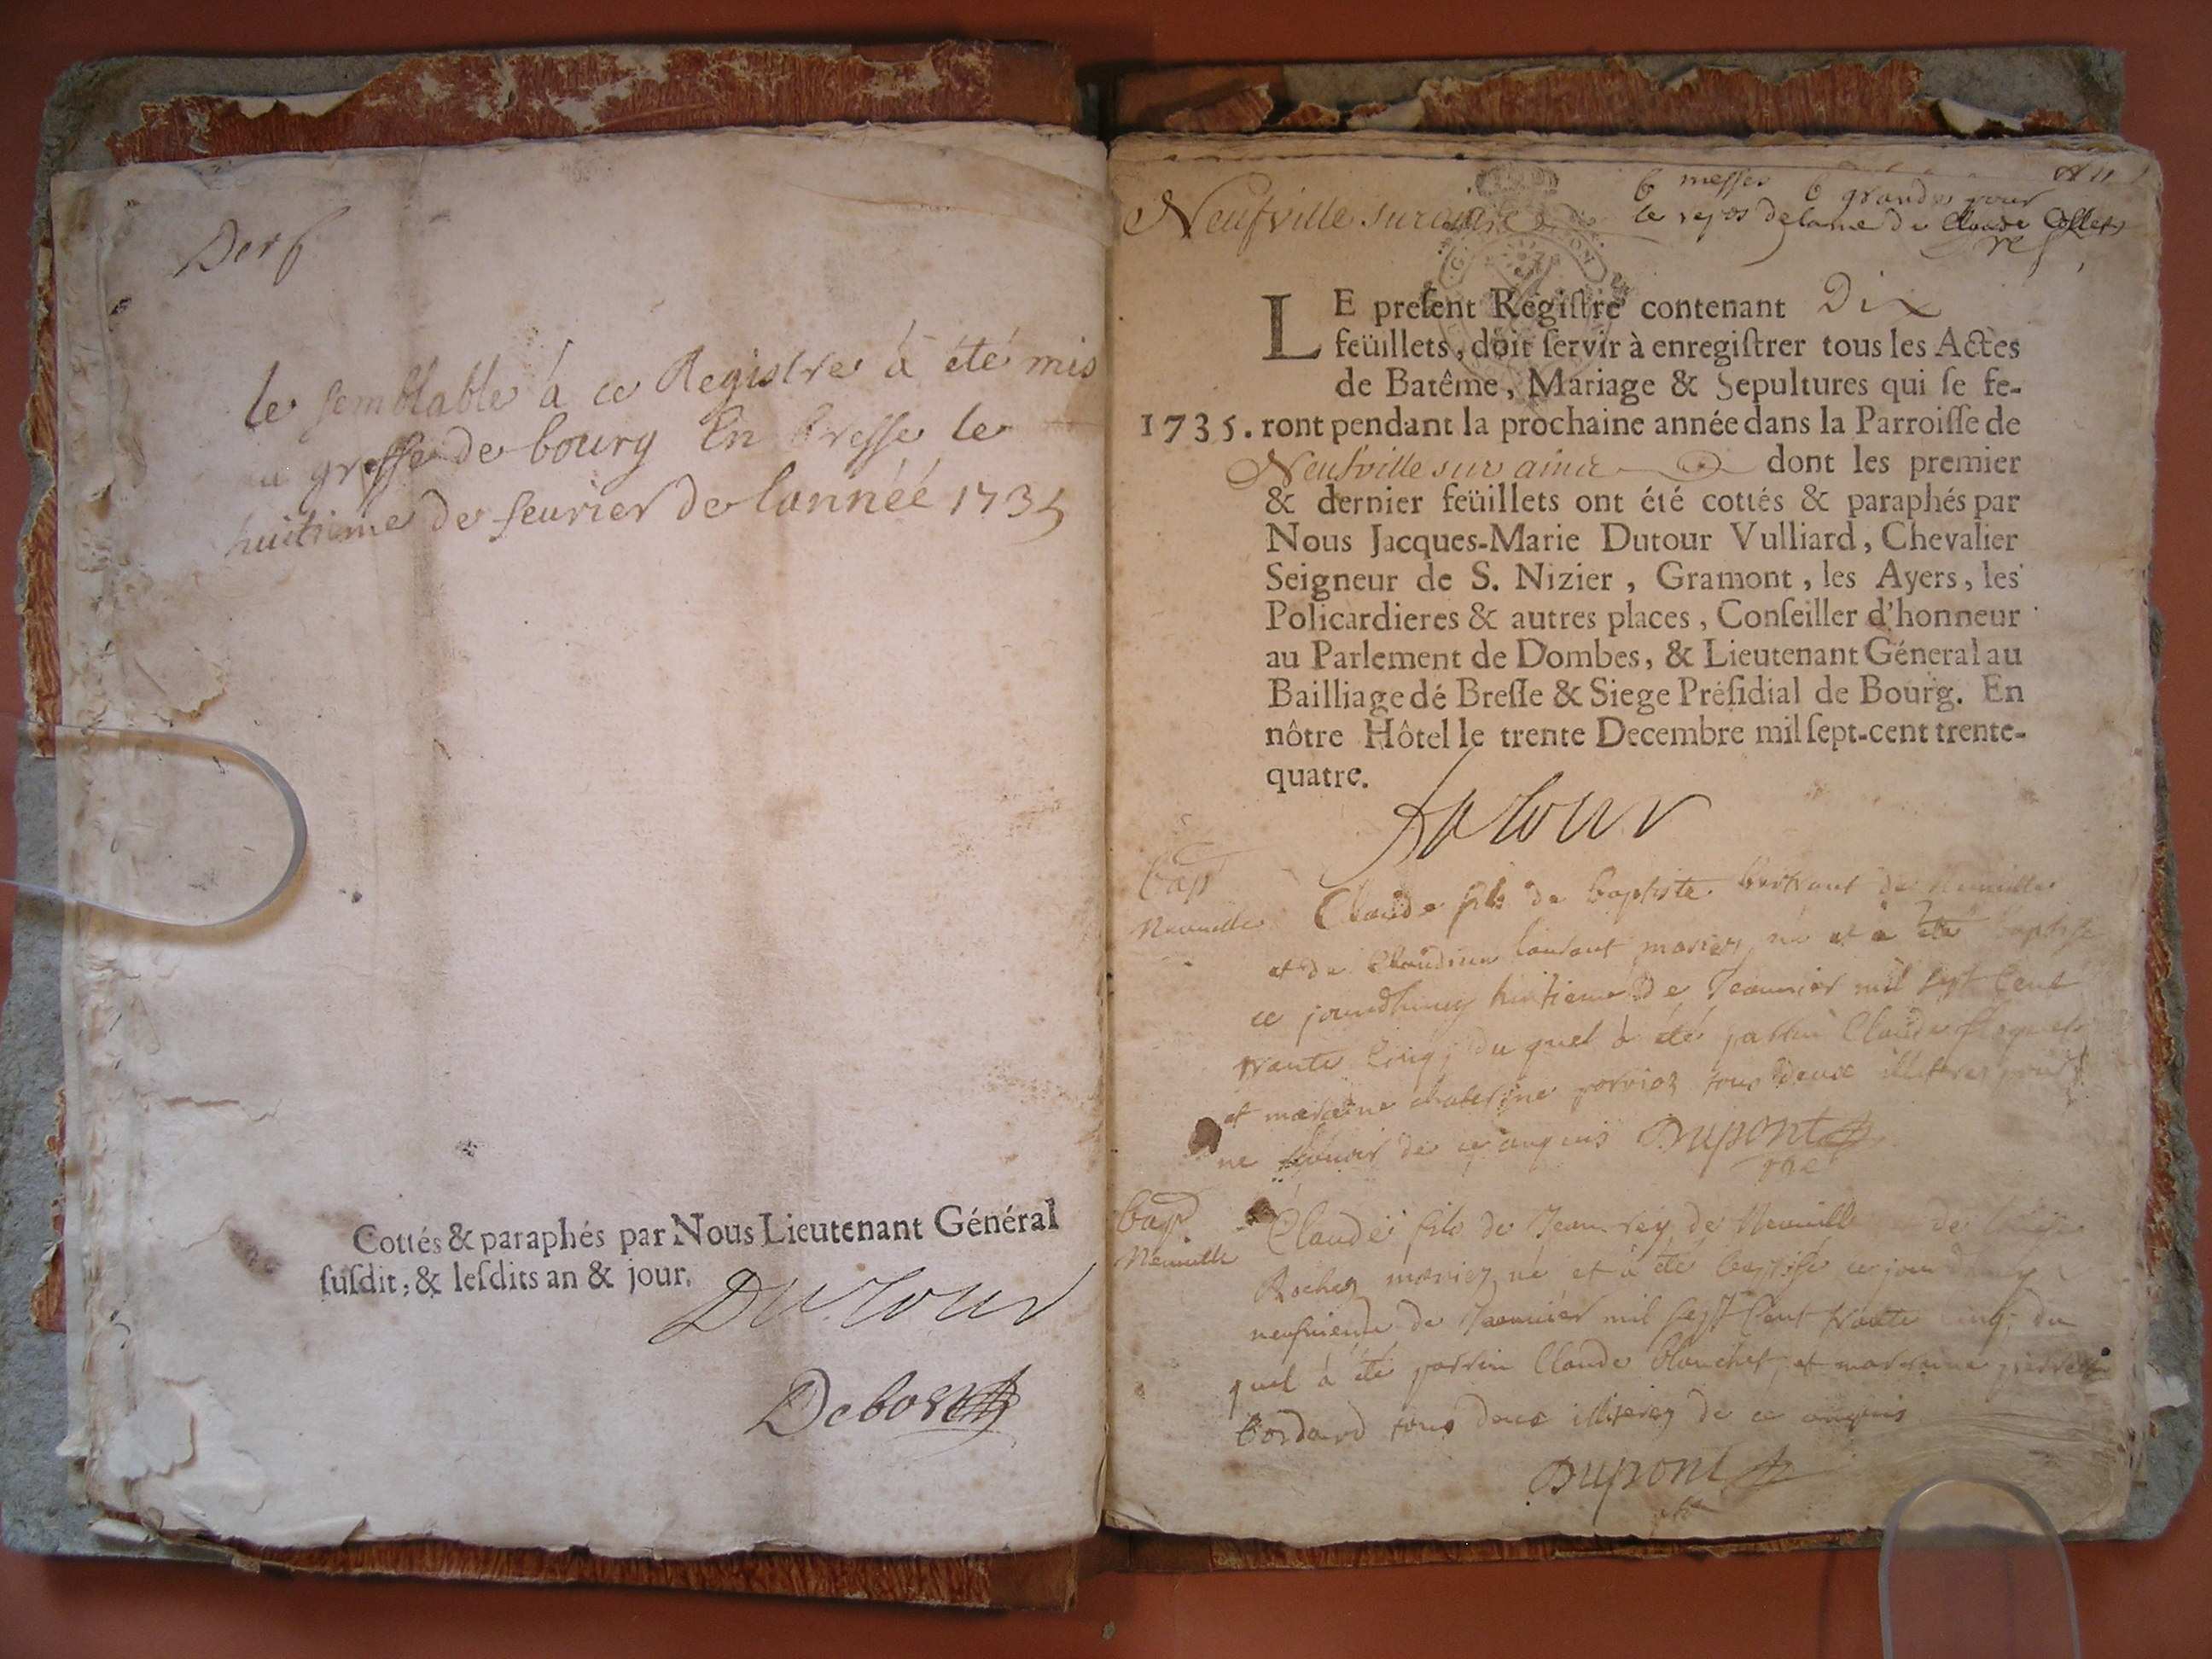 Derf
le semblable à ce Registre à été mis
au greffe de bourg En bresse le
huitieme de feurier de lannéé 1735
Cottés & paraphés par Nous Lieutenant Général
suſdit, & leſdits an & jour.
Dutour
Debost
Neufville sur ains
6 messes 6 grandes pour
le repos de lame de Claude Collet
LE preſent Regiſtre contenant Dix
feüillets, doit ſervir à enregiſtrer tous les Actes
de Batême, Mariage & Sepultures qui ſe fe-
1735. ront pendant la prochaine année dans la Parroiſſe de
Neufville sur ains dont les premier
& dernier feüillets ont été cottés & paraphés par
Nous Jacques-Marie Dutour Vulliard, Chevalier
Seigneur de S. Nizier, Gramont, les Ayers, les
Policardieres & autres places, Conſeiller d'honneur
au Parlement de Dombes, & Lieutenant Géneral au
Bailliage dé Breſſe & Siege Préſidial de Bourg. En
nôtre Hôtel le trente Decembre mil ſept-cent trente-
quatre.
Dutour
bap
Neuuille
Claude fils de baptiste de Neuuille
et de Claudine mariez, né et à été baptisé
ce jourdhuy huitieme de Jeanuier mil sept Cent
trante Cinq, du quel à été parrin Claude
et maraine tous deux illiterez pour
ne de ce enquis Dupont
bap
Neuuille
Claude fils de Jean rey de Neuuille de
Rochez mariez, né et à été baptisé ce jourdhuy
neufuieme de Jeanuier mil sept Cent trante Cinq, du
quel à été parrin Claude blanchet, et marraine
bordard tous deux illiterez de ce enquis
Dupont